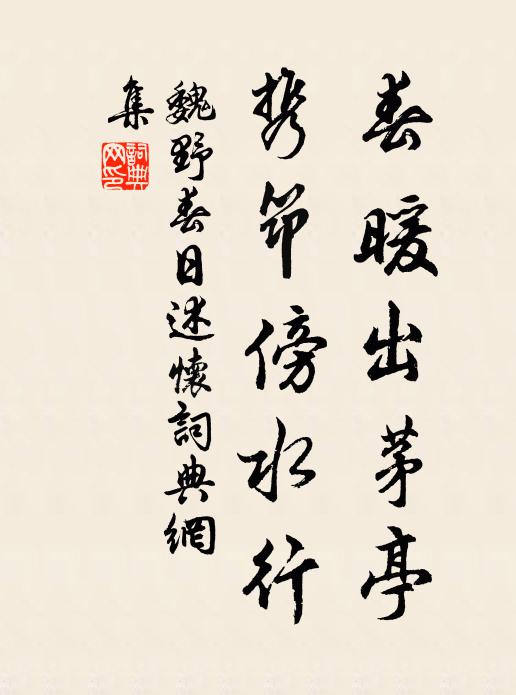 春暖出茅亭
携筇傍水行
魏野春日述懷詞典網
集
詞典
网印